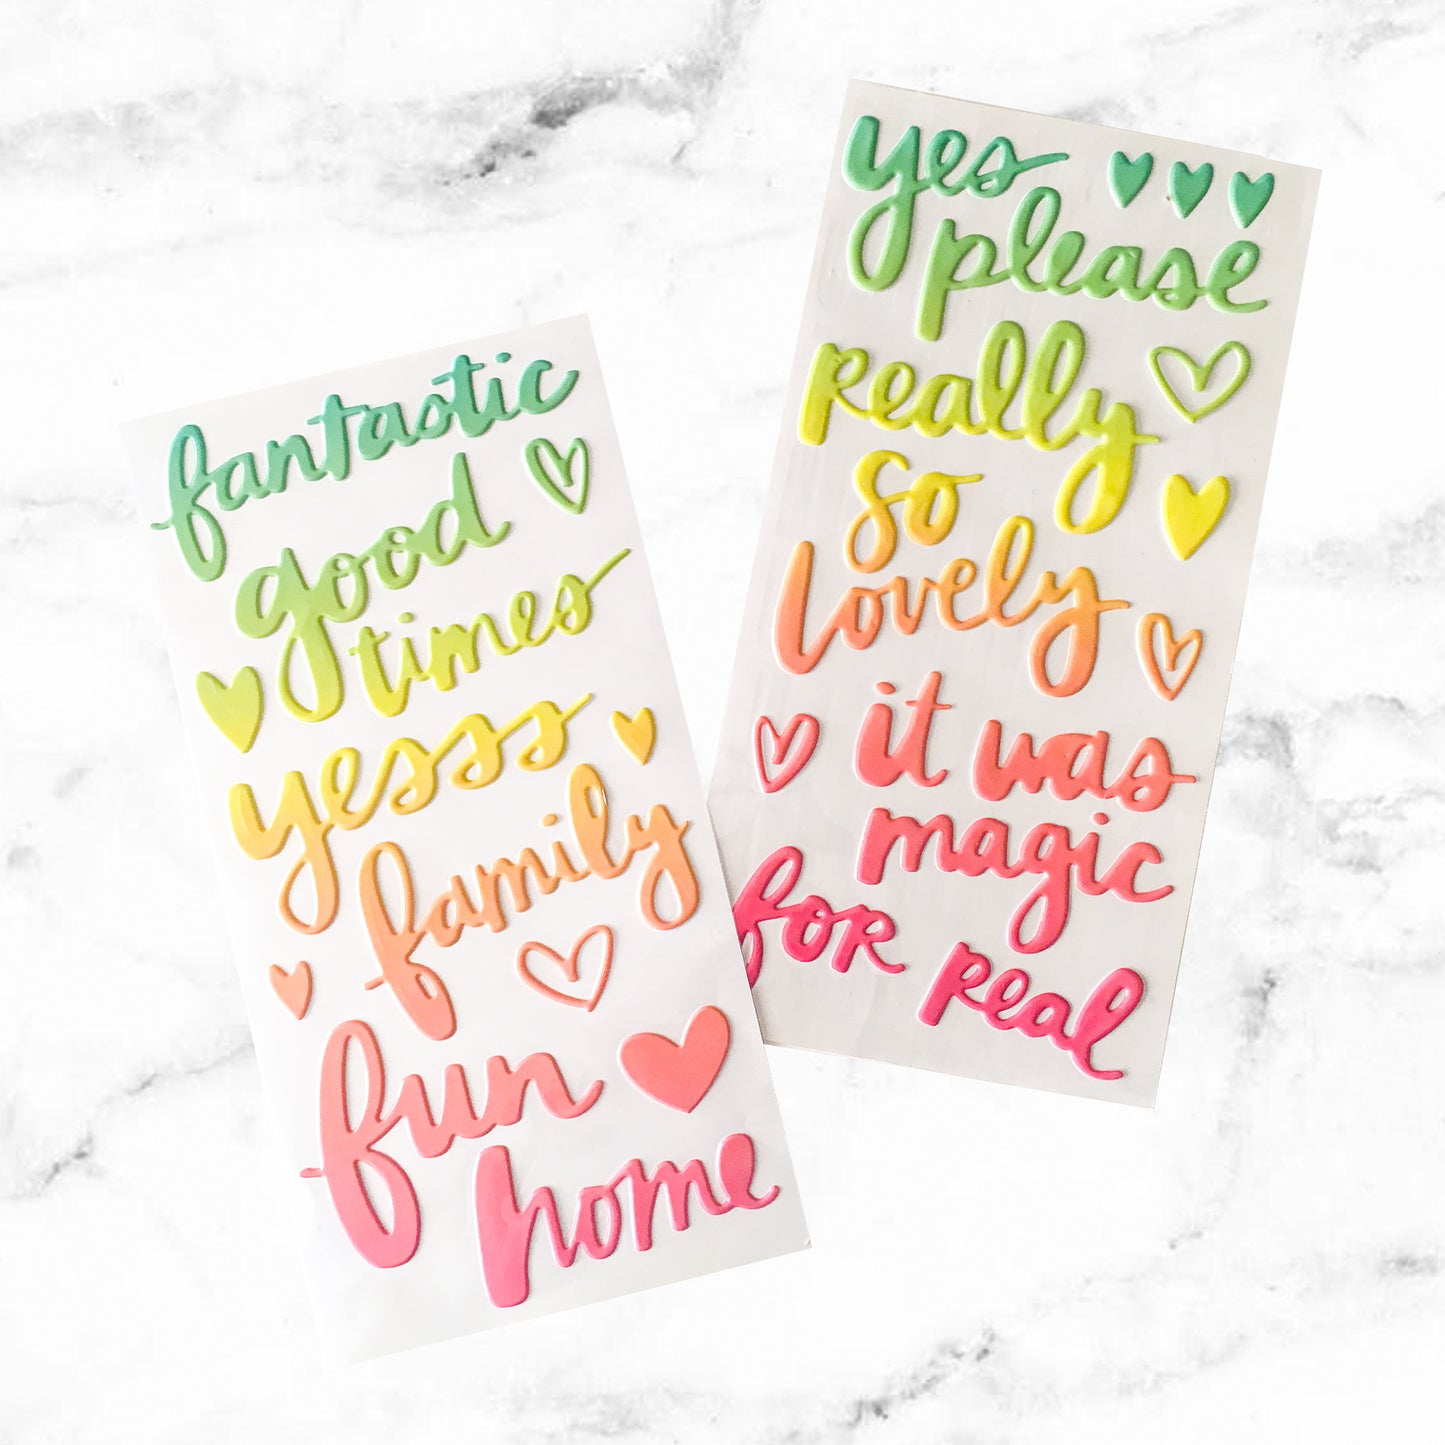 fantastic
good
times
yesss
family
fun
home
yes
please
really
so
lovely
it was
magic
for real